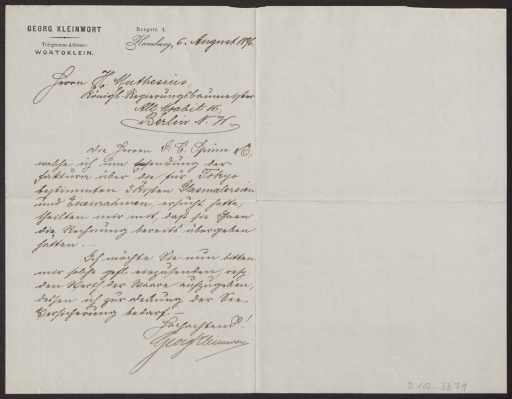 GEORG KLEINWORT
Telegramm-Adresse:
WORTOKLEIN.
Hamburg, 6. August 1896.
Herrn H. Muthesius,
Königl. Regierungsbaumeister
Alt Moabit 10.
Berlin N. W.
Die Herren J. C. Spinn & Co,
welche ich um Zusendung der
Faktura über die für Tokyo
bestimmten Kisten Glasmalereien
und Eisenrahmen, ersucht hatte,
theilten mir mit, dass sie Ihnen
die Rechnung bereits übergeben
hätten. –
Ich möchte Sie nun bitten
mir solche gefl. einzusenden, resp.
den Werth der Waare aufzugeben,
dessen ich zur Deckung der See-
Versicherung bedarf. –
Hochachtend!
Georg Kleinwort